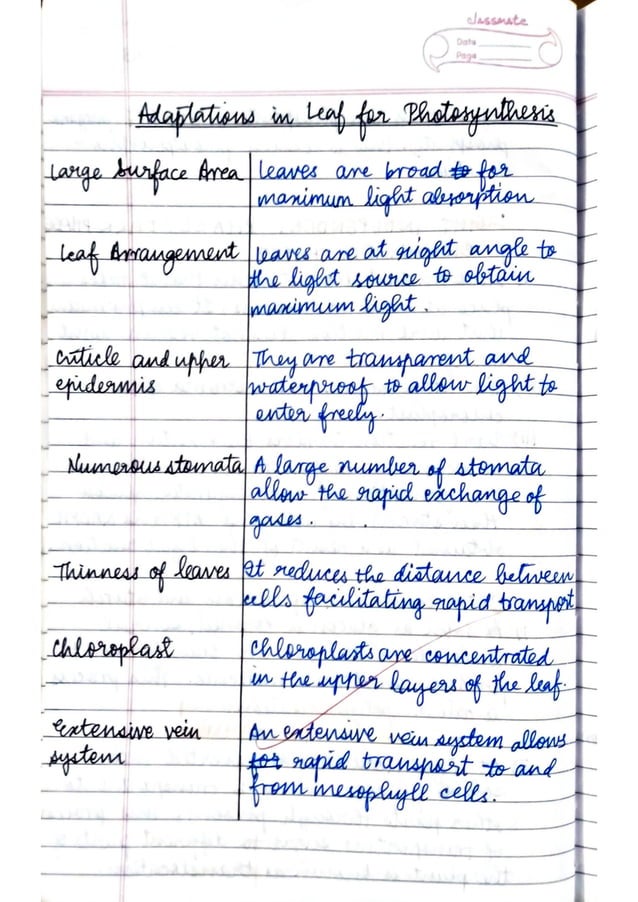 classmate
Date
Page
Adaptations in Leaf for Photosynthesis
Large Surface Area
Leaves are broad to for
maximum light absorption
Leaf Arrangement
Leaves are at right angle to
the light source to obtain
maximum light.
Cuticle and upper
epidermis
They are transparent and
waterproof to allow light to
enter freely.
Numerous stomata
A large number of stomata
allow the rapid exchange of
gases.
Thinness of leaves
It reduces the distance between
cells facilitating rapid transport
Chloroplast
Chloroplasts are concentrated
in the upper layers of the leaf.
Extensive vein
system
An extensive vein system allows
for rapid transport to and
from mesophyll cells.